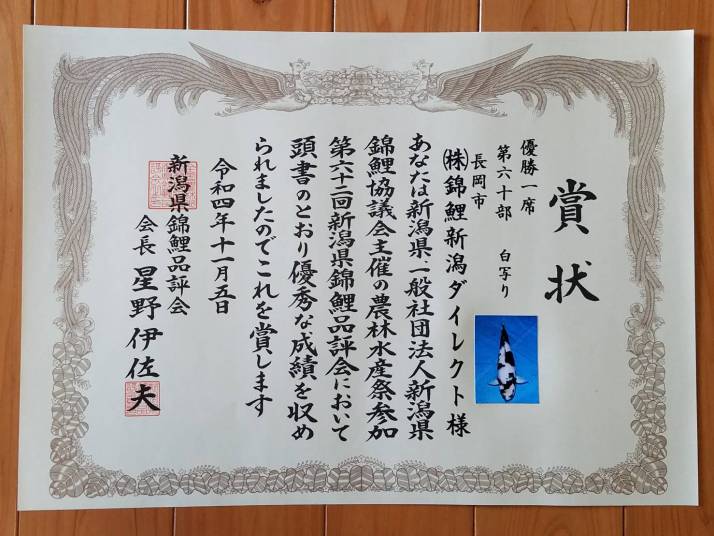 賞状
優勝一席
第六十部 白写り
長岡市
㈱錦鯉新潟ダイレクト様
あなたは新潟県、一般社団法人新潟県
錦鯉協議会主催の農林水産祭参加
第六十二回新潟県錦鯉品評会において
頭書のとおり優秀な成績を収め
られましたのでこれを賞します
令和四年十一月五日
新潟県錦鯉品評会
会長 星野伊佐夫